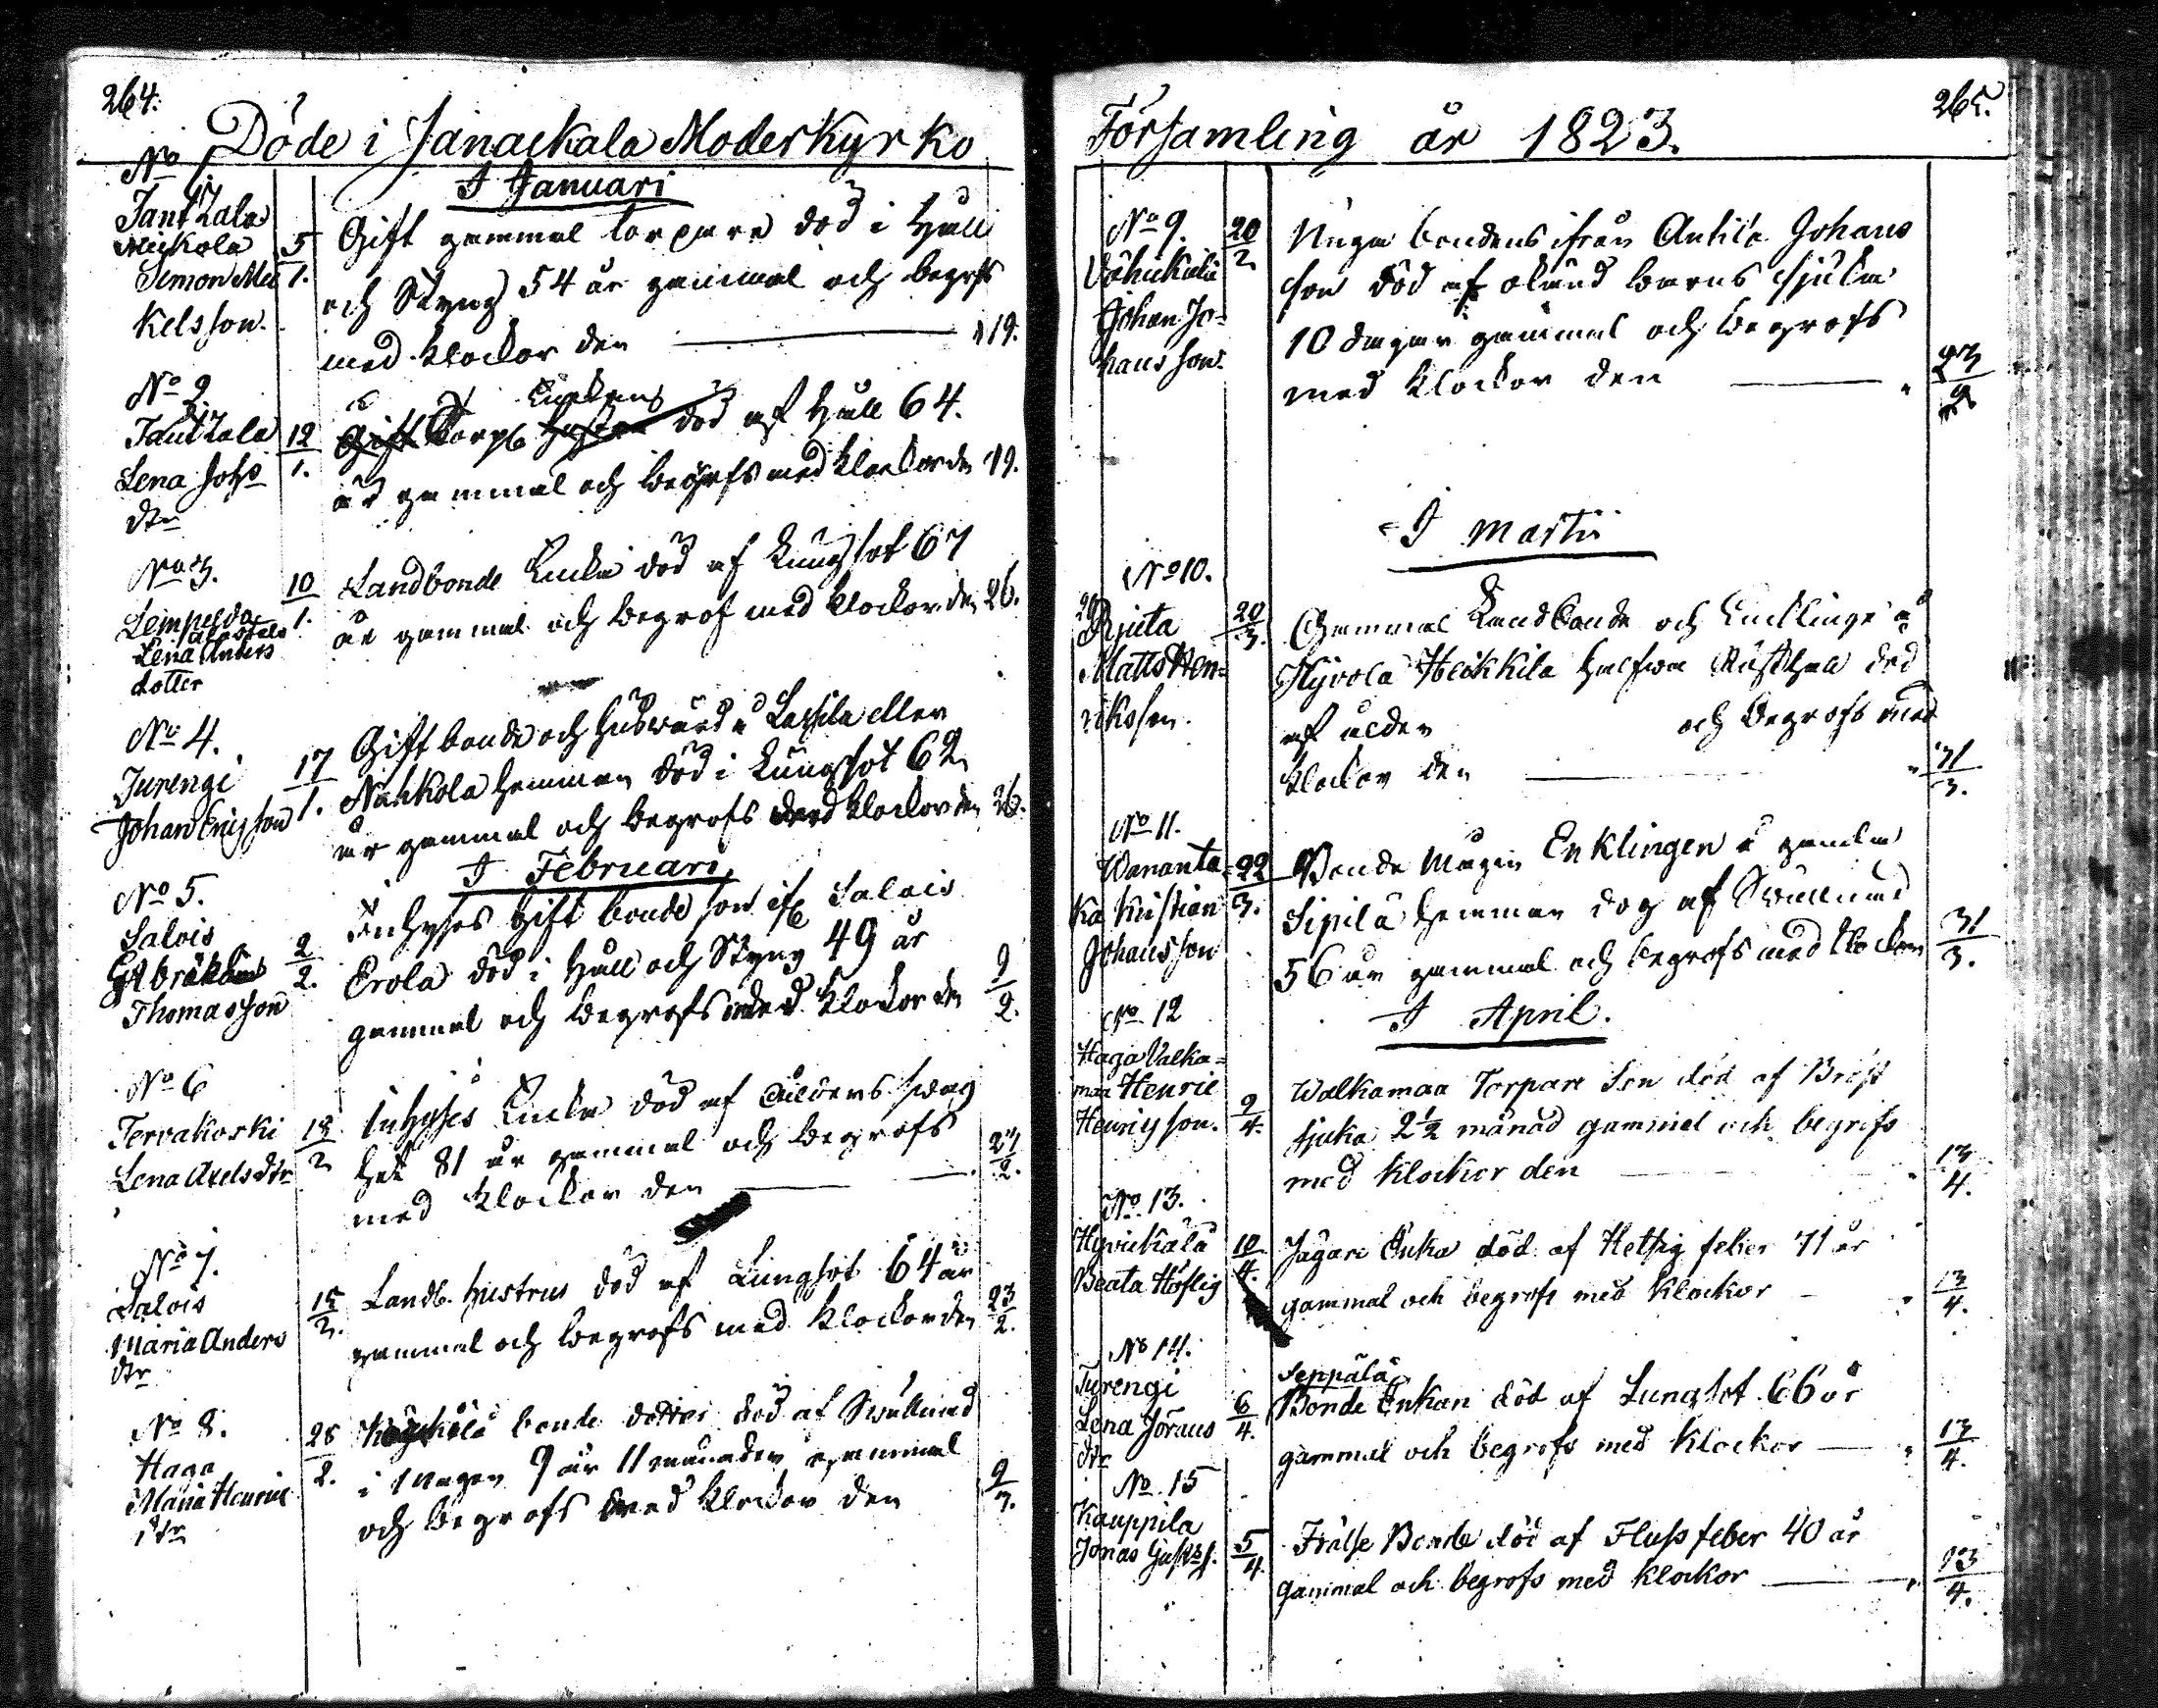 264.
Döde i Janackala Moderkyrko
No 1.
I Januari
Tant Zala
Mickola
Simon Mic
Kelsson.
5
1.
Gift gammal torpare död i Håll
och Styng 54 år gammal och begrofs
med klockor den
19.
No 2.
Tantzala
Lena Johs
dtr
12
1.
Enckans
Gift Torp död af Håll 64.
år gammal och begrofs med klockor den 19.
No 3.
Lempeldo
Lena Anders
dotter
10
1.
Landbonde Encka död af Lungsot 67
år gammal och begrof med klockor den 26.
No 4.
Turengi
Johan Ericsson
17
1.
Gift bonde och husvärd å Lassila eller
Nahkola hemman död i Lungsot 62
år gammal och begrofs med klockor den 26.
I Februari
No 5.
Salois
Abraham
Thomasson
2
2.
Inhyses Gift bonde son if Salois
Erola död i Håll och Styng 49 år
gammal och begrofs med klockor den
9
2.
No 6
Tervakoski
Lena Axelsdtr
18
2
Inhyses Encka död af ålders svag
het 81 år gammal och begrofs
med klockor den
23
2.
No 7.
Salois
Maria Anders
dtr
15
2.
Landb. hustrus död af Lungsot 64 år
gammal och begrofs med klockor den
23
2.
No 8.
Haga
Maria Henric
dtr
28
2.
bonde dotter död af Swullnad
i magen 9 år 11 månader gammal
och begrofs med klockor den
9
3.
265.
Församling år 1823.
No 9.
Vähikkälä
Johan Jo-
hansson
20
2
Unga bondens ifrån Antila Johans
son död af okänd barns sjuka
10 dagar gammal och begrofs
med klockor den
23
2
I Martii
No 10.
Rjuta
Matts Hen-
rikssn.
20
3.
Gammal Landbonde och Encklinge å
Hyvola Heikkila halfva Rusthåll död
af ålder och begrofs med
klockor den
31
3.
No 11.
Wananta
ka Kristian
Johansson
22
3.
Bonde Mågen Enklingen å gamla
Sipilä hemman dog af Swullnad
56 år gammal och begrofs med klockor
31
3.
I April.
No 12
Haga Valka-
maa Henric
Henricsson.
9
4.
Walkamaa Torpare Son död af Bröst
sjuka 2 1/2 månad gammal och begrofs
med klockor den
13
4.
No 13.
Hyvickälä
Beata Höflig
10
4.
Jägare Enka död af Hetsig feber 71 år
gammal och begrofs med Klockor
13
4.
No 14.
Turengi
Lena Jörans
dtr
6
4.
Seppälä
Bonde Enkan död af Lungsot 66 år
gammal och begrofs med klockor
13
4.
No 15
Kauppila
Jonas Gustafs.
5
4.
Frälse Bonde död af Flussfeber 40 år
gammal och begrofs med klockor
13
4.